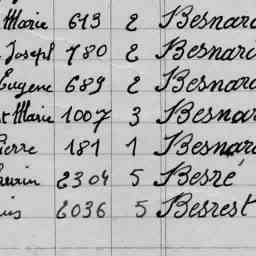 Marie 613 2 Besnard
Joseph 780 2 Besnard
Eugene 689 2 Besnard
t Marie 1007 3 Besnard
ierre 181 1 Besnard
urin 2304 5 Besré
uis 2036 5 Besrest